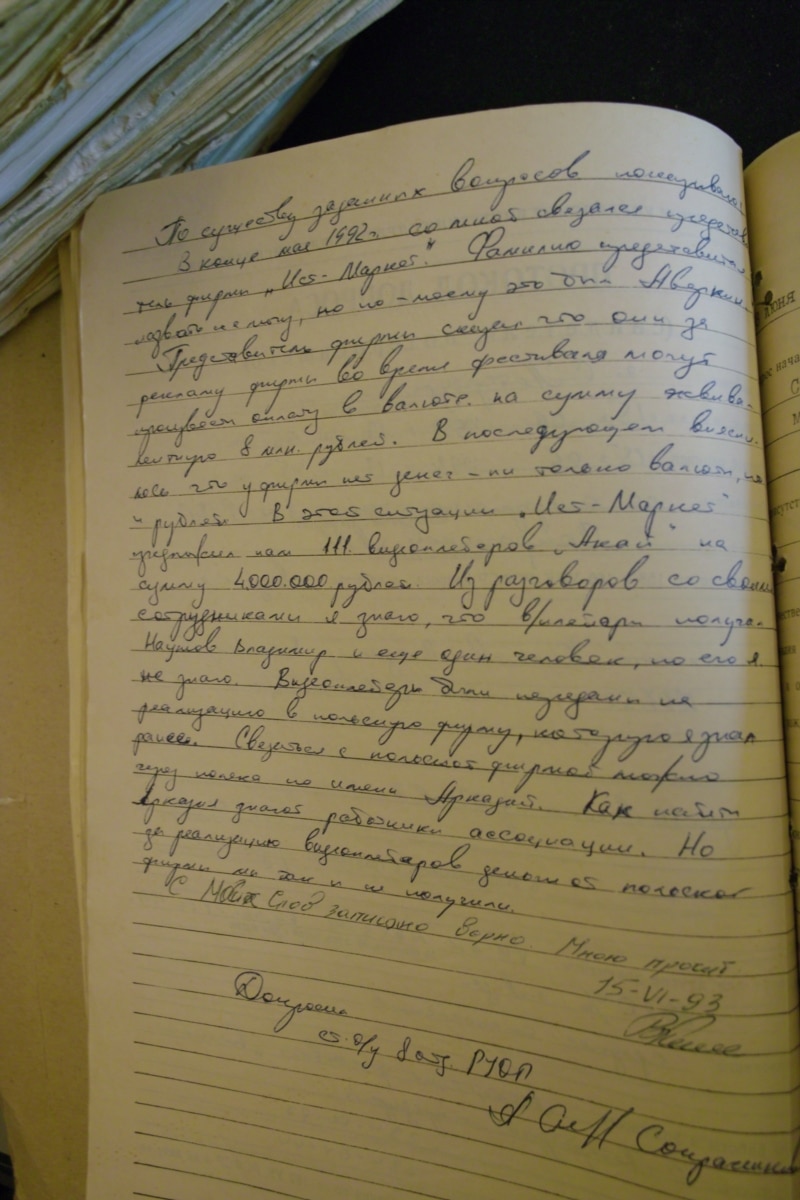 По существу заданных вопросов показываю:
В конце мая 1992г. со мной связался представи-
тель фирмы „Ист-Маркет". Фамилию представителя
назвать не могу, но по-моему это был Аверкин.
Представитель фирмы сказал что они за
рекламу фирмы во время фестиваля могут
произвести оплату в валюте на сумму эквива-
лентную 8 млн. рублей. В последующем выясни-
лось что у фирмы нет денег - ни только валюты, но
и рублей. В этой ситуации „Ист-Маркет"
предложил нам 111 видеоплейеров „Акай" на
сумму 4000.000 рублей. Из разговоров со своими
сотрудниками я знаю, что в/плейеры получал
Наумов Владимир и еще один человек, но его я
не знаю. Видеоплейеры были переданы на
реализацию в польскую фирму, которую я знал
ранее. Связаться с польской фирмой можно
через поляка по имени Аркадий. Как найти
Аркадия знают работники ассоциации. Но
за реализацию видеоплейеров денег от польской
фирмы мы так и не получили.
С моих слов записано верно. Мною прочит
15-VI-93
Допросил
ст. о/у 8 отд. РУОП